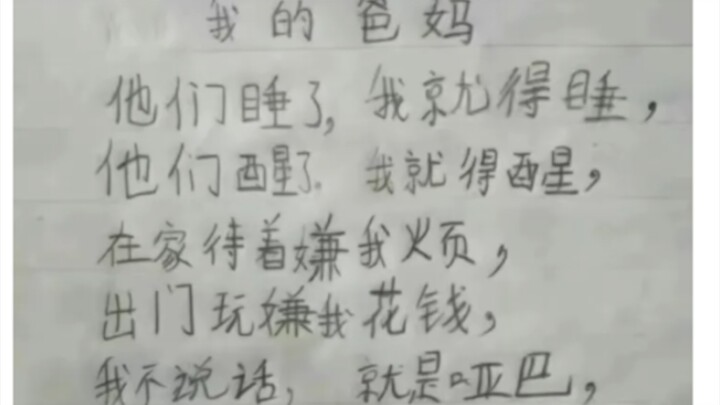 我的爸妈
他们睡了,我就得睡,
他们醒了.我就得醒,
在家待着嫌我烦,
出门玩嫌我花钱,
我不说话,就是哑巴,